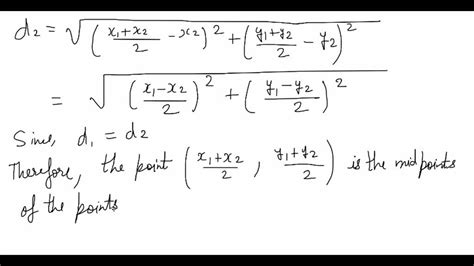 d₂ = √((x₁+x₂)/2 − x₂)² + ((y₁+y₂)/2 − y₂)²
= √((x₁−x₂)/2)² + ((y₁−y₂)/2)²
Sine, d₁ = d₂
Therefore, the point ((x₁+x₂)/2 , (y₁+y₂)/2) is the midpoints
of the points